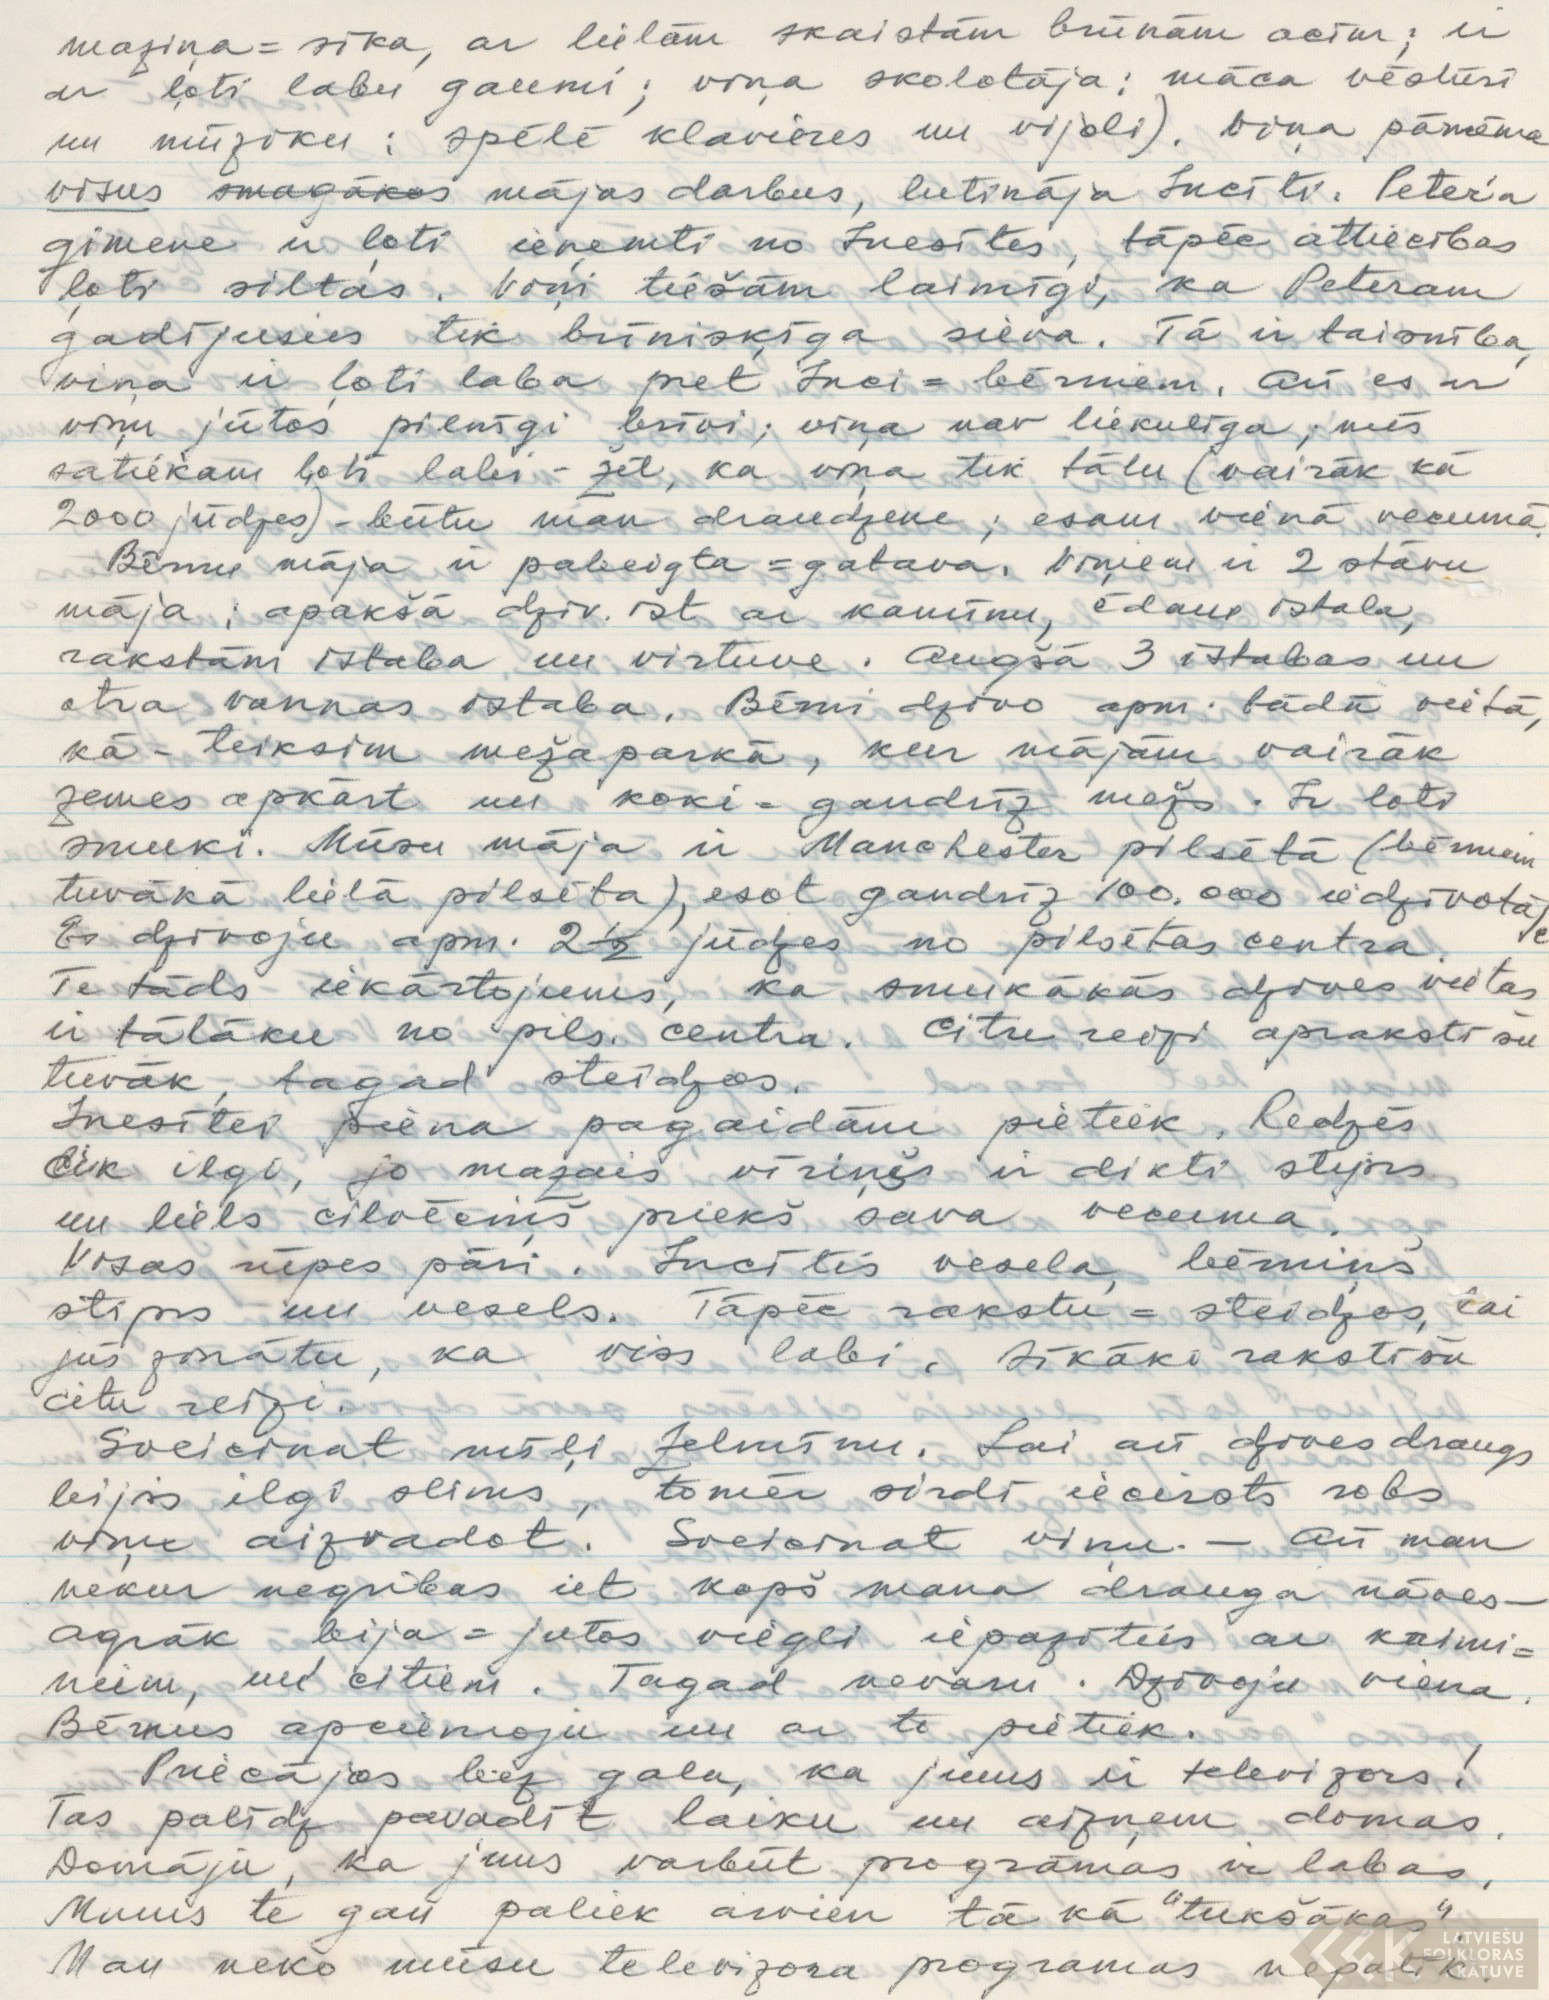 maziņa = sīka, ar lielām skaistām brūnām acīm; ir
ar ļoti labu gaumi; viņa skolotāja: māca vēsturi
un mūziku: spēlē klavieres un vijoli). Viņa pārņēma
visus smagākos mājas darbus, lutināja Incīti. Peter'a
ģimene ir ļoti ieņemti no Inesītes, tāpēc attiecības
ļoti siltas. Viņi tiešām laimīgi, ka Peteram
gadījusies tik brīnišķīga sieva. Tā ir taisnība,
viņa ir ļoti laba pret Inci = bērniem. Arī es ar
viņu jūtos pilnīgi brīvi; viņa nav liekulīga; mēs
satiekam ļoti labi - žēl, ka viņa tik tālu (vairāk kā
2000 jūdzes) - būtu man draudzene; esam vienā vecumā.
Bērnu māja ir pabeigta = gatava. Viņiem ir 2 stāvu
māja; apakšā dzīv. ist ar kamīnu, ēdam istaba,
rakstām istaba un virtuve. Augšā 3 istabas un
otra vannas istaba. Bērni dzīvo apm. tādā vietā,
kā - teiksim mežaparkā, kur mājām vairāk
zemes apkārt un koki - gandrīz mežs. Ir ļoti
smuki. Mūsu māja ir Manchester pilsētā (bērniem
tuvākā lielā pilsēta), esot gandrīz 100.000 iedzīvotāji
Es dzīvoju apm. 2½ jūdzes no pilsētas centra.
Te tāds iekārtojums, ka smukākās dzīves vietas
ir tālāku no pils. centra. Citu reizi aprakstīšu
tuvāk, tagad steidzos.
Inesītei piena pagaidām pietiek. Redzēs
cik ilgi, jo mazais vīriņš ir dikti stiprs
un liels cilvēciņš priekš sava vecuma.
Visas rūpes pāri. Incītis vesela, bērniņš
stiprs un vesels. Tāpēc rakstu = steidzos, lai
jūs zinātu, ka viss labi. Sīkāki rakstīšu
citu reizi.
Sveicinat mīļi Zelmīnu. Lai arī dzīvesdraugs
bijis ilgi slims, tomēr sirdī iecirsts robs
viņu aizvadot. Sveicinat viņu. - Arī man
nekur negribas iet kopš mana drauga nāves -
agrāk bija = jutos viegli iepazīties ar kaimi=
ņiem, un citiem. Tagad nevaru. Dzīvoju viena.
Bērnus apciemoju un ar to pietiek.
Priecājos bez gala, ka jums ir televizors!
Tas palīdz pavadīt laiku un aizņem domas.
Domāju, ka jums varbūt programas ir labas.
Mums te gan paliek arvien tā kā "tukšākas".
Man neko mūsu televizora programas nepatīk.
LATVIEŠU
FOLKLORAS
KRĀTUVE